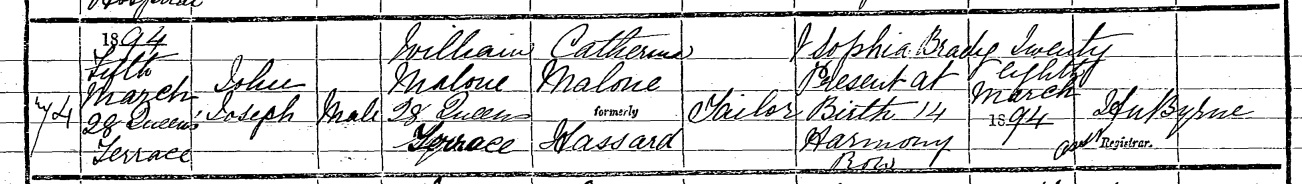 Hospital
74
1894
Fifth
March
28 Queens
Terrace
John
Joseph
Male
William
Malone
28 Queens
Terrace
Catherine
Malone
formerly
Hassard
Tailor
Sophia Brady
Present at
Birth 14
Harmony
Row
Twenty
eighth
March
1894
Byrne
Asst Registrar.